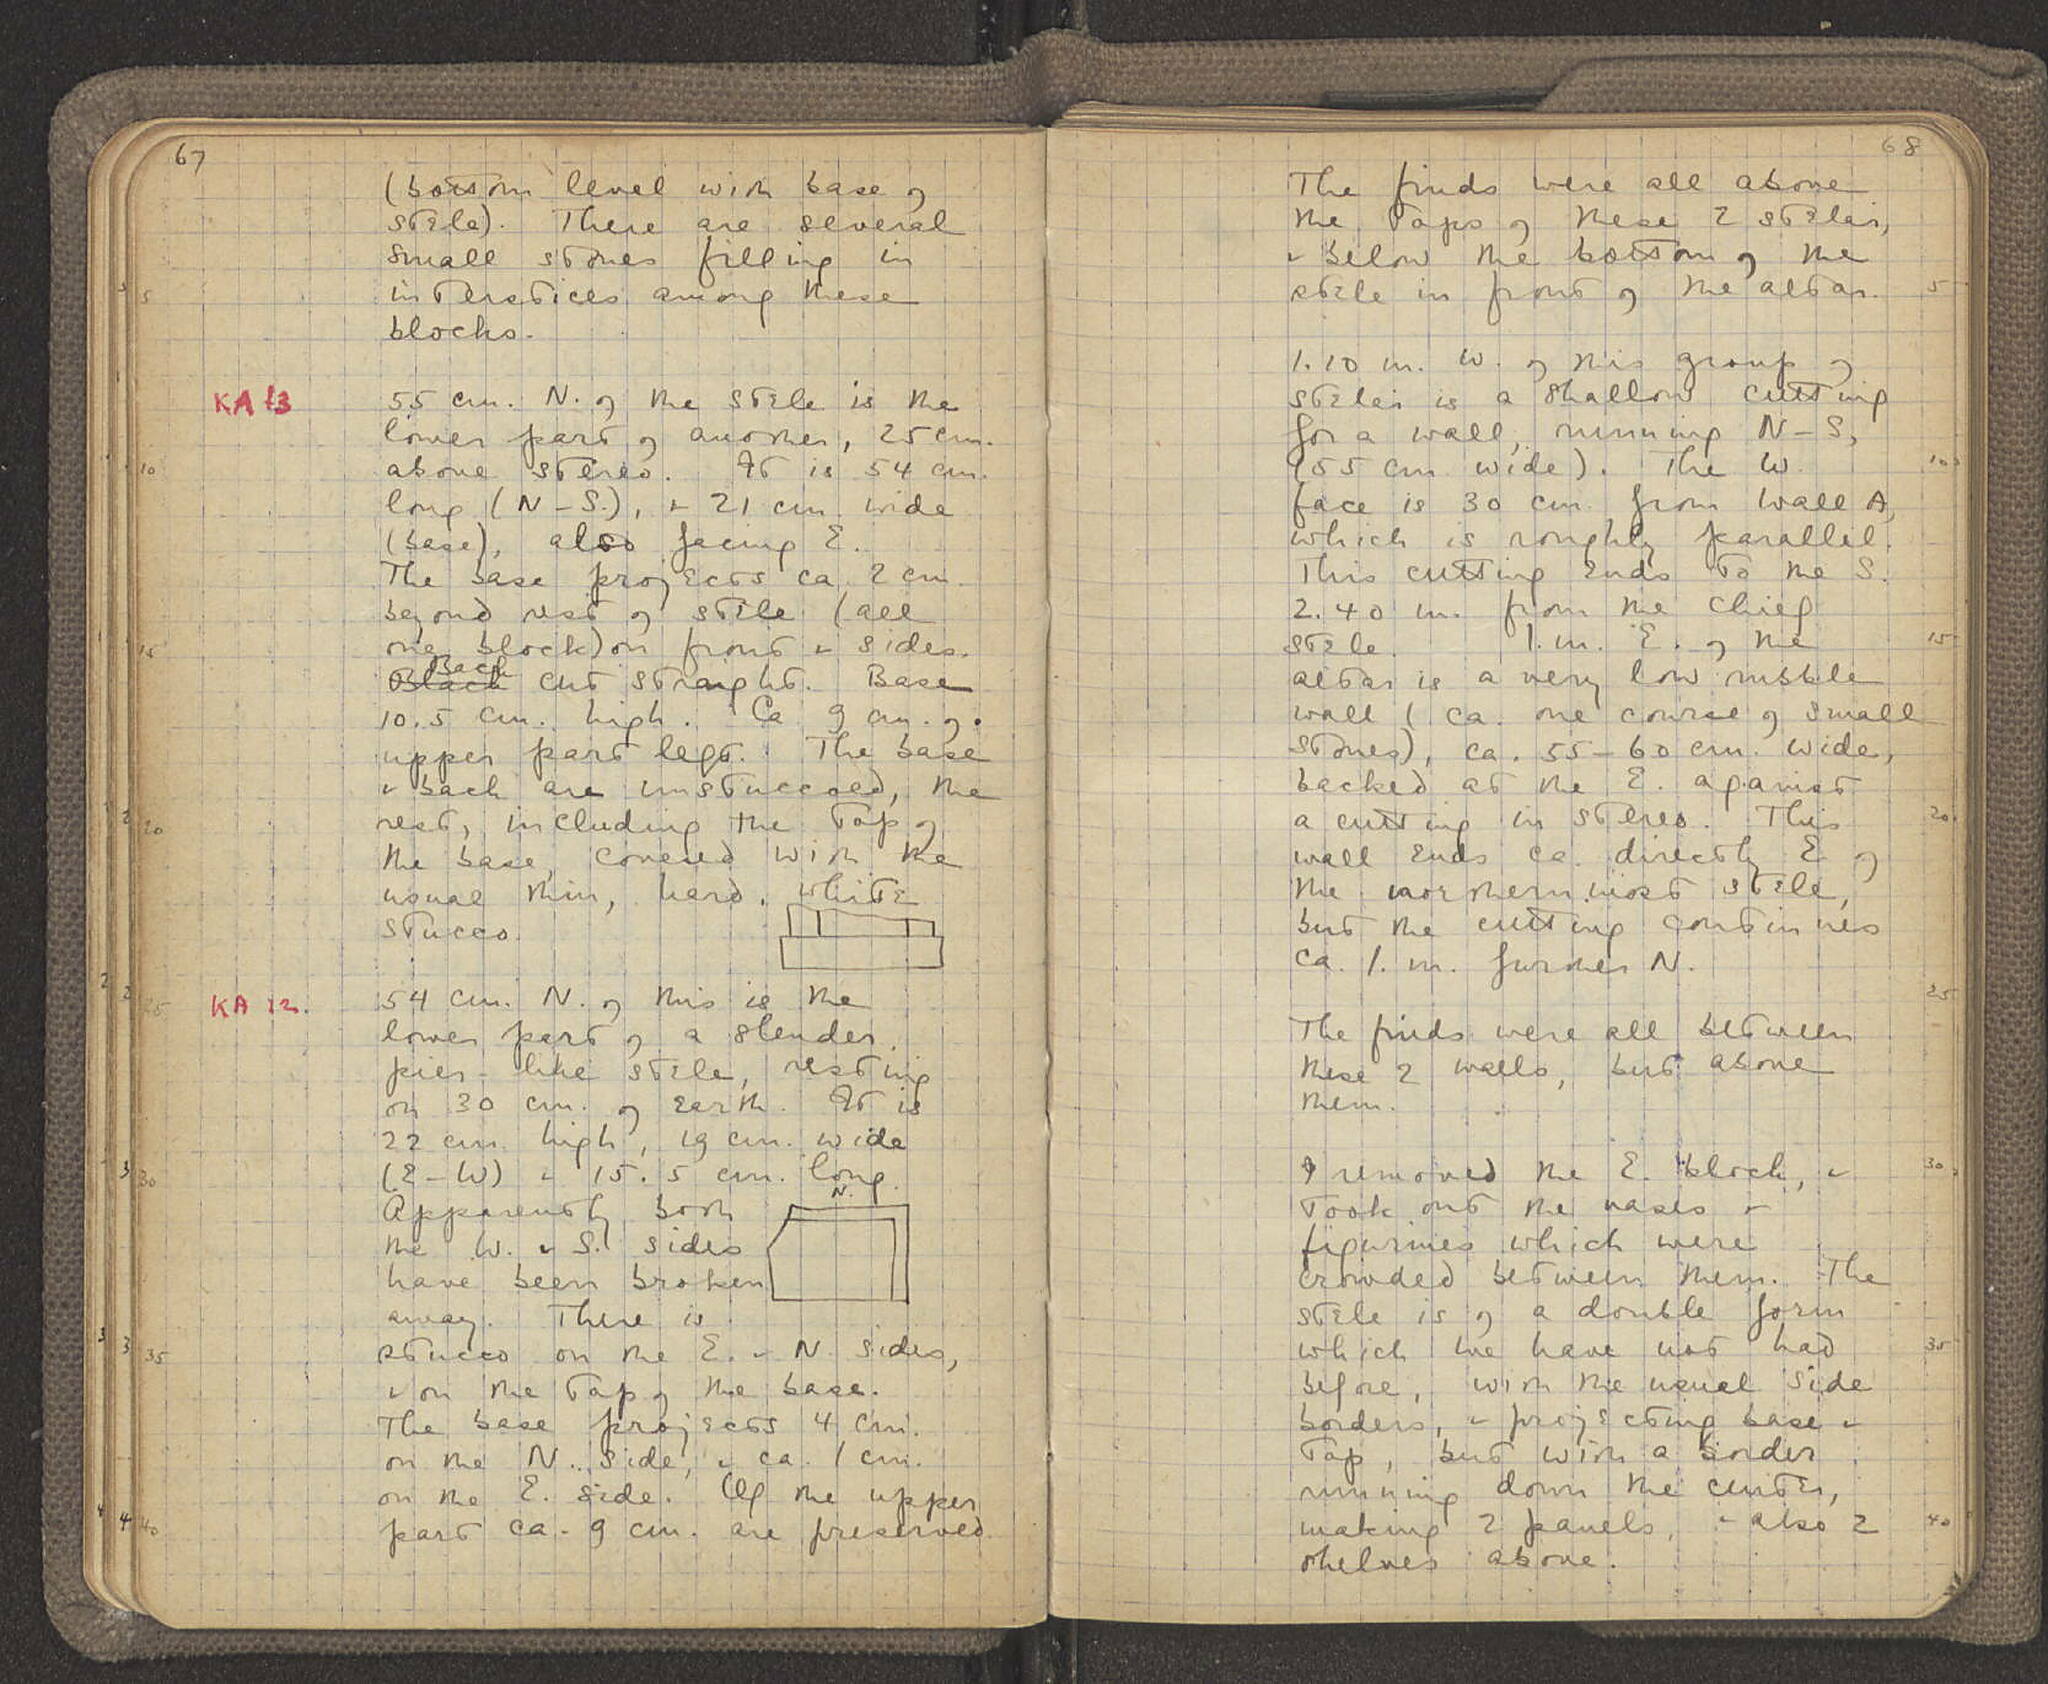 67
(bottom level with base of
stele). There are several
small stones filling in
5 interstices among these
blocks.
KA 13 55 cm. N. of the stele is the
lower part of another, 25 cm.
10 above stereo. It is 54 cm.
long (N-S.), & 21 cm. wide
(base), also facing E.
The base projects ca. 2 cm.
beyond rest of stele (all
15 one block) on front & sides.
Black Back cut straight. Base
10.5 cm. high. Ca 9 cm. of
upper part left. The base
& back are unstuccoed, the
20 rest, including the top of
the base, covered with the
usual thin, hard, white
stucco.
25 KA 12. 54 cm. N. of this is the
lower part of a slender,
pier-like stele, resting
on 30 cm. of earth. It is
22 cm. high, 19 cm. wide
30 (E-W) & 15.5 cm. long.
N.
Apparently both
the W. & S. sides
have been broken
away. There is
35 stucco on the E. & N. sides,
& on the top of the base.
The base projects 4 cm.
on the N. side, & ca. 1 cm.
on the E. side. Of the upper
40 part ca. 9 cm. are preserved.
68
The finds were all above
the tops of these 2 stelai,
& below the bottom of the
stele in front of the altar. 5
1.10 m. W. of this group of
stelai is a shallow cutting
for a wall, running N-S,
(55 cm. wide). The W. 10
face is 30 cm. from Wall A,
which is roughly parallel.
This cutting ends to the S.
2.40 m. from the chief
stele. 1. m. E. of the 15
altar is a very low rubble
wall (ca. one course of small
stones), ca. 55-60 cm. wide,
backed at the E. against
a cutting in stereo. This 20
wall ends ca. directly E. of
the northernmost stele,
but the cutting continues
ca. 1. m. further N.
25
The finds were all between
these 2 walls, but above
them.
I removed the E. block, & 30
took out the vases &
figurines which were
crowded between them. The
stele is of a double form
which we have not had 35
before, with the usual side
borders, & projecting base &
top, but with a border
running down the center,
making 2 panels, & also 2 40
shelves above.